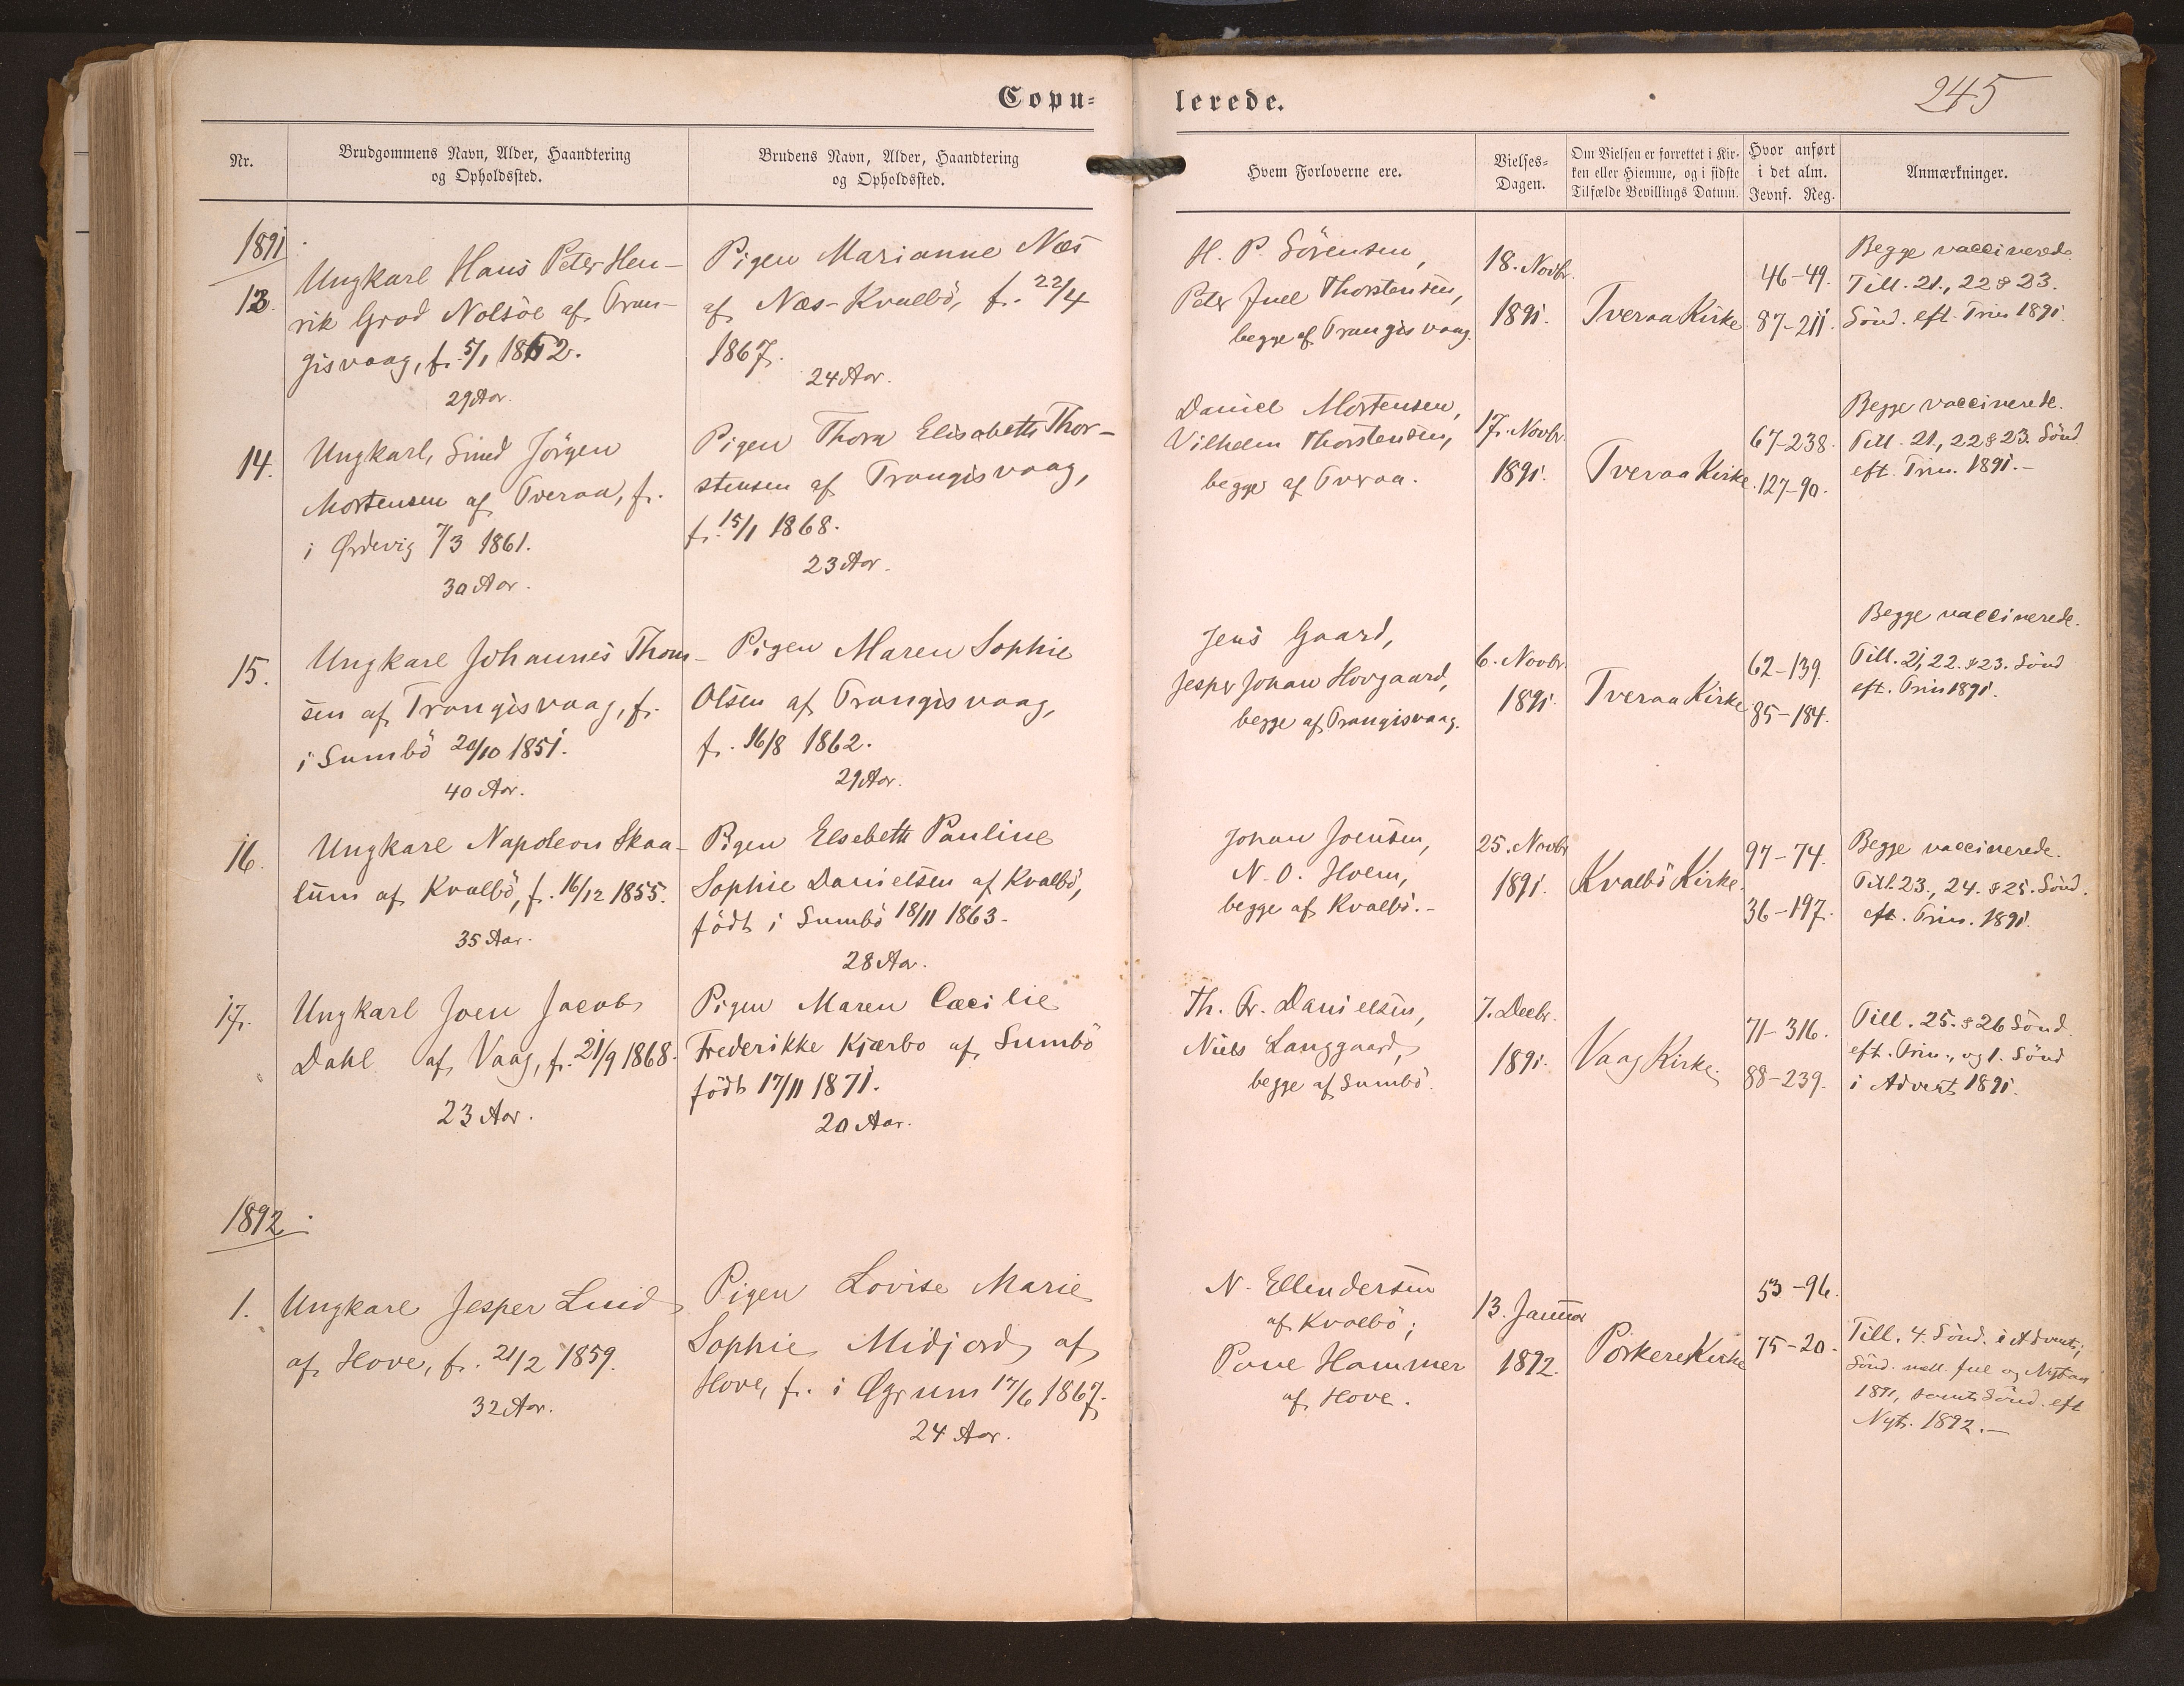 Copu-
lerede.
245
Nr.
Brudgommens Navn, Alder, Haandtering
og Opholdssted.
Brudens Navn, Alder, Haandtering
og Opholdssted.
Hvem Forloverne ere.
Vielses-
Dagen.
Om Vielsen er forrettet i Kir-
ken eller Hiemme, og i sidste
Tilfælde Bevillings Datum.
Hvor anført
i det alm.
Jevnf. Reg.
Anmærkninger.
1891
13.
Ungkarl Hans Peter Hen-
rik Grod Nolsöe af Tran-
gisvaag, f. 5/1 1862.
29 Aar.
Pigen Marianne Næs
af Næs-Kvalbö, f. 22/4
1867.
24 Aar.
H. P. Sörensen,
Peter Juel Thorstensen,
begge af Trangisvaag.
18. Novbr.
1891.
Tveraa Kirke
46-49.
87-211.
Begge vaccinerede.
Till. 21., 22 & 23.
Sönd. eft. Trin 1891.
14.
Ungkarl, Smed Jörgen
Mortensen af Tveraa, f.
i Ørdevig 7/3 1861.
30 Aar.
Pigen Thora Elisabeth Thor-
stensen af Trangisvaag,
f. 15/1 1868.
23 Aar.
Daniel Mortensen,
Vilhelm Thorstensen,
begge af Tveraa.
17. Novbr.
1891.
Tveraa Kirke.
67-238.
127-90.
Begge vaccinerede.
Till. 21., 22 & 23. Sönd.
eft. Trin. 1891.-
15.
Ungkarl Johannes Thom-
sen af Trangisvaag, f.
i Sumbö 20/10 1851.
40 Aar.
Pigen Maren Sophie
Olsen af Trangisvaag,
f. 16/8 1862.
29 Aar.
Jens Gaard,
Jesper Johan Hovgaard,
begge af Trangisvaag.
6. Novbr.
1891.
Tveraa Kirke
62-139.
85-184.
Begge vaccinerede.
Till. 21, 22. & 23. Sönd
eft. Trin 1891.
16.
Ungkarl Napoleon Skaa-
lum af Kvalbö, f. 16/12 1855.
35 Aar.
Pigen Elsebeth Pauline
Sophie Danielsen af Kvalbö,
födt i Sumbö 18/11 1863.
28 Aar.
Johan Joensen,
N. O. Holm,
begge af Kvalbö.-
25. Novbr
1891.
Kvalbö Kirke.
97-74.
36-197.
Begge vaccinerede.
Till. 23., 24. & 25. Sönd.
eft. Trin. 1891.
17.
Ungkarl Joen Jacob
Dahl af Vaag, f. 21/9 1868.
23 Aar.
Pigen Maren Cæcilie
Frederikke Kjærbo af Sumbö
födt 17/11 1871.
20 Aar.
Th. Fr. Danielsen,
Niels Langgaard,
begge af Sumbö.
7. Decbr.
1891.
Vaag Kirke.
71-316.
88-239.
Till. 25. & 26 Sönd.
eft. Trin., og 1. Sönd
i Advent 1891.
1892.
1.
Ungkarl Jesper Luid
af Hove, f. 21/2 1859.
32 Aar.
Pigen Lovise Marie
Sophie Midjord af
Hove, f. i Øgrum 17/6 1867.
24 Aar.
N. Ellendersen
af Kvalbö;
Poul Hammer
af Hove.
13. Januar
1892.
Porkere Kirke
53-96.
75-20.
Till. 4. Sönd. i Advent;
Sönd. mell. Jul og Nytaar
1891, samt Sönd. eft
Nyt. 1892.-